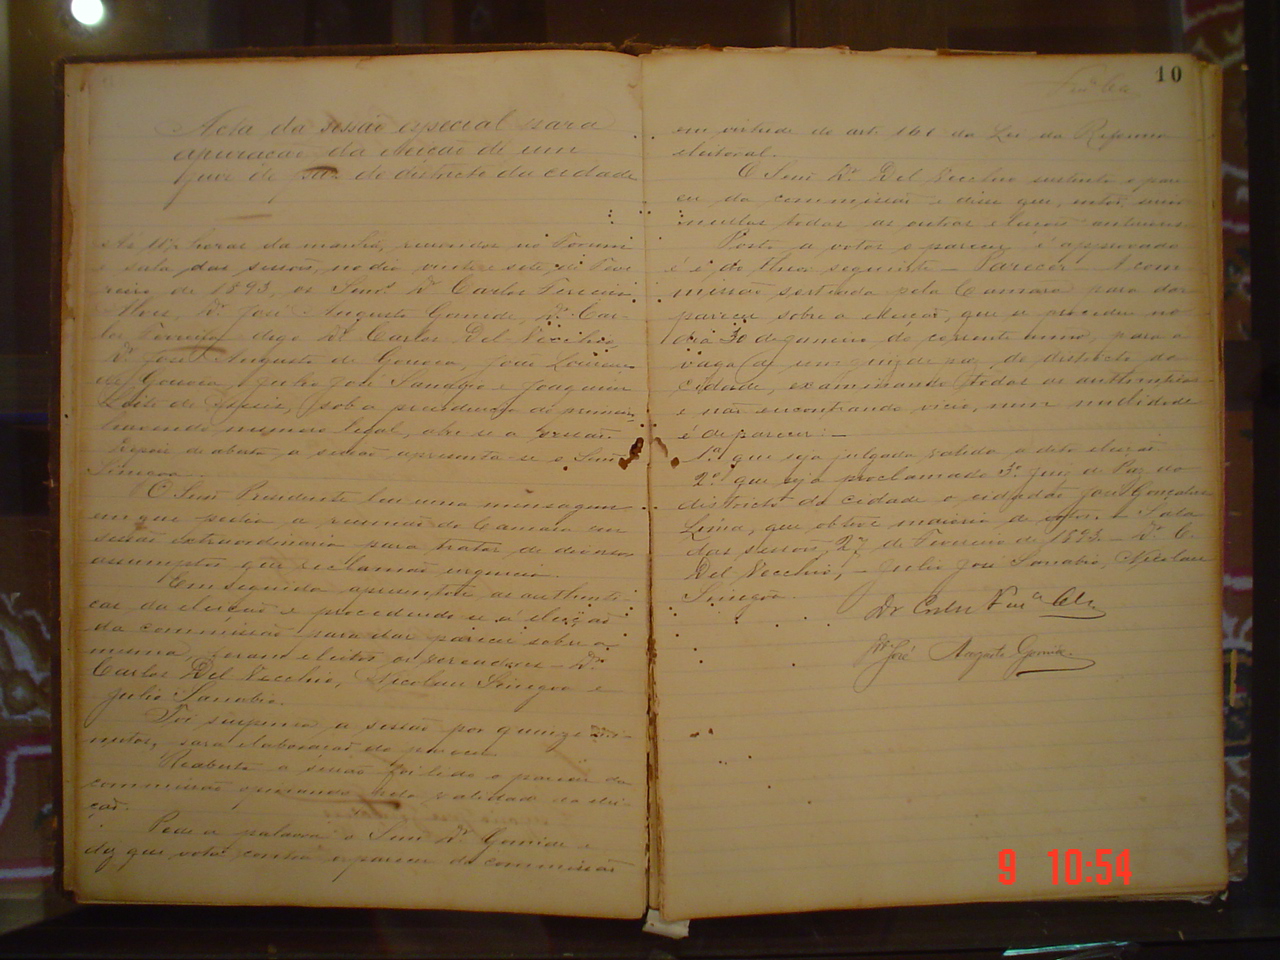 Acta da sessão especial para
apuração da eleição de um
juiz de paz do districto da cidade
As 11½ horas da manhã, reunidos no Forum
e sala das sessões, no dia vinte e sete de Feve-
reiro de 1893, os Senrs. Dr. Carlos Ferreira
Alves, Dr. José Augusto Gomide, Dr. Car-
los Ferreira digo Dr. Carlos Del Vecchio,
Dr. José Augusto de Gouvea, José Lourenço
de Gouvea, Julio José Sanabio e Joaquim
Leite de sob a presidencia do primeiro,
havendo numero legal, abre-se a sessão.
Depois de aberta a sessão apresenta-se o Senr.
O Senr. Presidente leu uma mensagem
em que pedia a reunião da Camara em
sessão extraordinaria para tratar de diversos
assumptos que reclamão urgencia.
Em seguida apresentou as authenti-
cas da eleição e procedendo-se á eleição
da commissão para dar parecer sobre a
mesma, foram eleitos os vereadores – Dr.
Carlos Del Vecchio, Nicolau e
Julio Sanabio.
Foi suspensa a sessão por quinze mi-
nutos, para elaboração do parecer.
Reaberta a sessão foi lido o parecer da
commissão opinando pela validade da elei-
ção.
Pede a palavra o Senr. Dr. Gomide e
diz que vota contra o parecer da commissão
10
em virtude do art. da Lei da Reforma
eleitoral.
O Senr. Dr. Del Vecchio sustenta o pare-
cer da commissão e disse que, então, serião
nullas todas as outras eleições anteriores
Posto a votos o parecer é approvado
e é do theor seguinte – Parecer – A com-
missão sorteada pela Camara para dar
parecer sobre a eleição, que se procedeu no
dia 30 de Janeiro do corrente anno, para a
vaga de um juiz de paz do districto da
Cidade, examinando todas as authenticas
e não encontrando vicio, nem nullidade
é de parecer: –
1.º que seja julgada valida a dita eleição
2.º que seja proclamado 3.º Juiz de Paz do
districto da cidade o cidadão José Gonçalves
Lima, que obteve maioria de votos. – Sala
das sessões, 27 de Fevereiro de 1893. – Dr. C.
Del Vecchio, – Julio José Sanabio, Nicolau
Dr Carlos Ferra. Alz.
Dr José Augusto Gomide
9 10:54